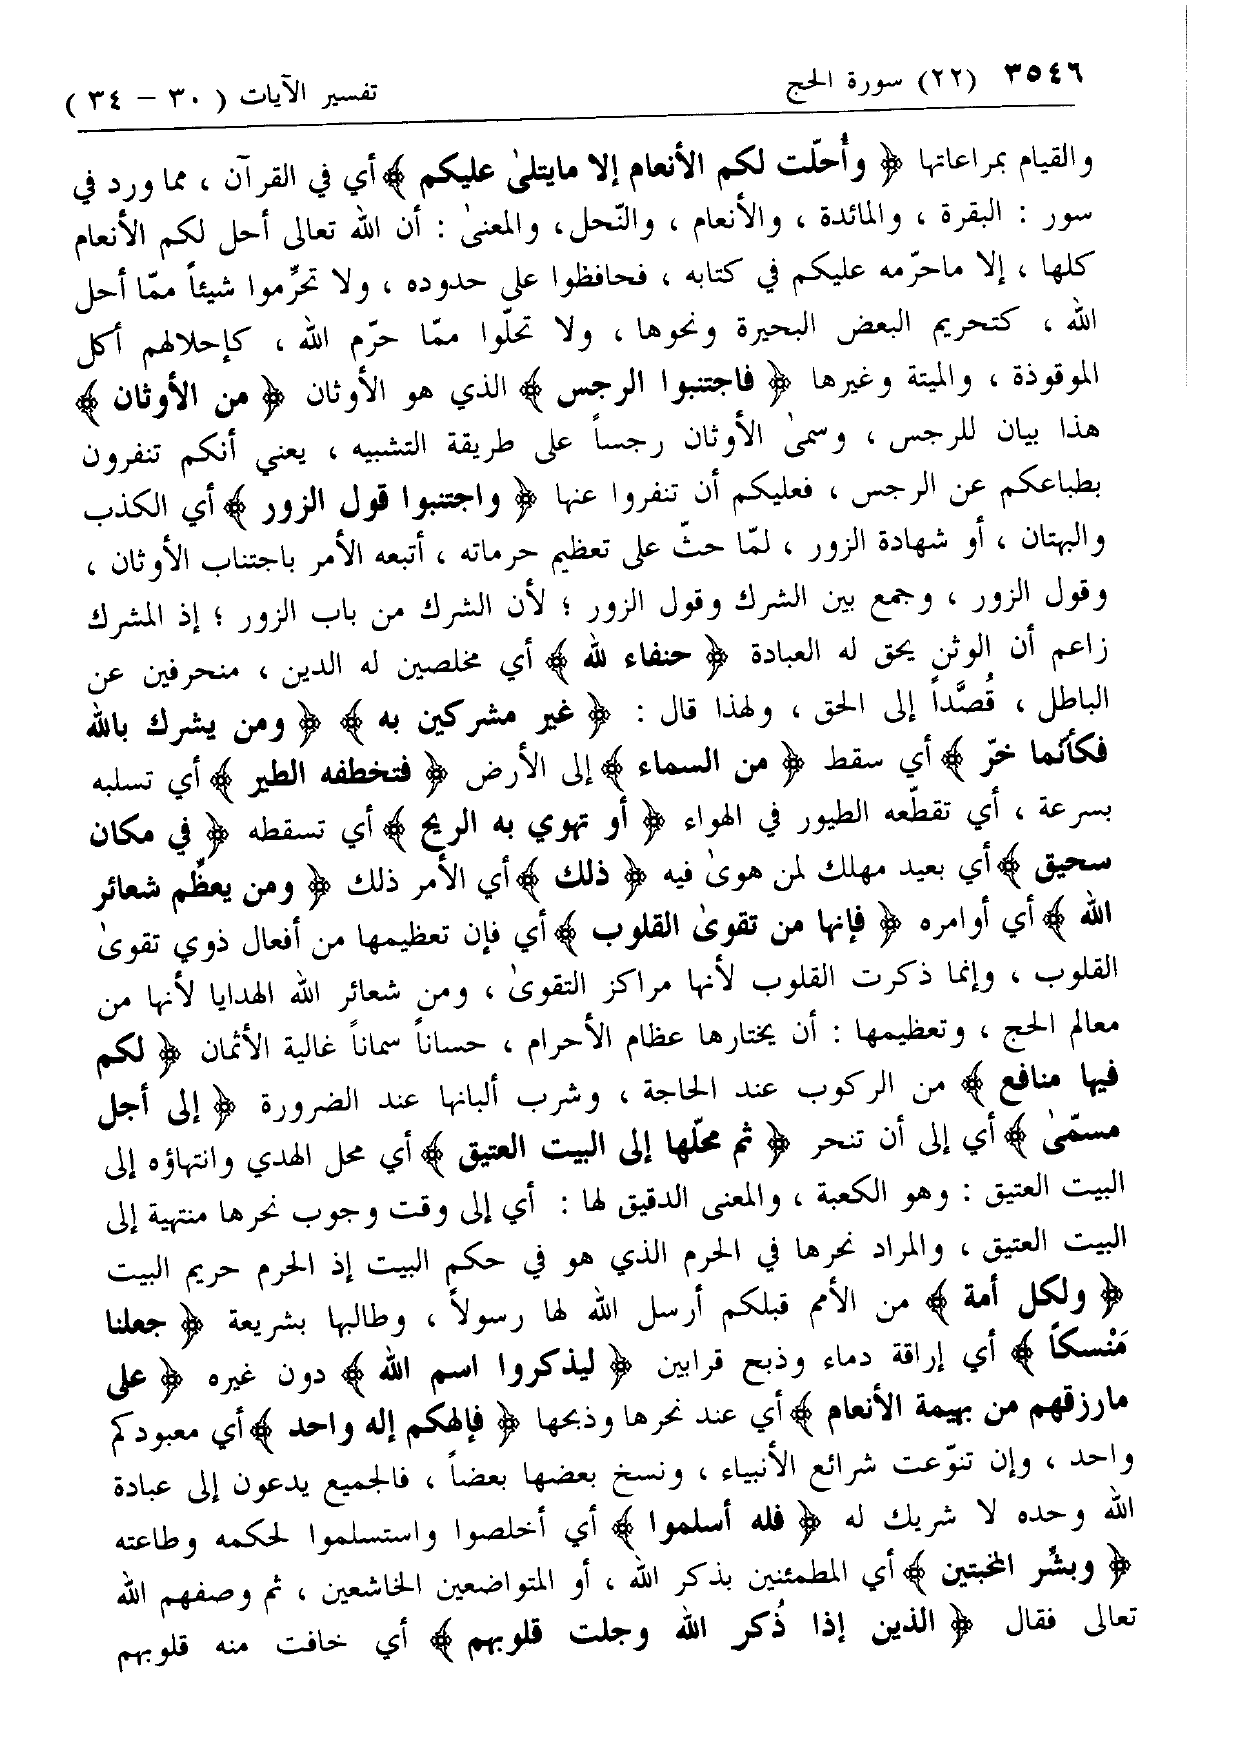 ٣٥٤٦ (٢٢) سورة الحج
تفسير الآيات ( ٣٠ – ٣٤ )
والقيام بمراعاتها ﴿ وأُحلّت لكم الأنعام إلا مايتلىٰ عليكم ﴾ أي في القرآن ، مما ورد في
سور : البقرة ، والمائدة ، والأنعام ، والنّحل، والمعنىٰ : أن الله تعالى أحل لكم الأنعام
كلها ، إلا ماحرّمه عليكم في كتابه ، فحافظوا على حدوده ، ولا تحرِّموا شيئاً ممّا أحل
الله ، كتحريم البعض البحيرة ونحوها ، ولا تحلّوا ممّا حرّم الله ، كإحلالهم أكل
الموقوذة ، والميتة وغيرها ﴿ فاجتنبوا الرجس ﴾ الذي هو الأوثان ﴿ من الأوثان ﴾
هذا بيان للرجس ، وسمىٰ الأوثان رجساً على طريقة التشبيه ، يعني أنكم تنفرون
بطباعكم عن الرجس ، فعليكم أن تنفروا عنها ﴿ واجتنبوا قول الزور ﴾ أي الكذب
والبهتان ، أو شهادة الزور ، لمّا حثّ على تعظيم حرماته ، أتبعه الأمر باجتناب الأوثان ،
وقول الزور ، وجمع بين الشرك وقول الزور ؛ لأن الشرك من باب الزور ؛ إذ المشرك
زاعم أن الوثن يحق له العبادة ﴿ حنفاء لله ﴾ أي مخلصين له الدين ، منحرفين عن
الباطل ، قُصَّداً إلى الحق ، ولهذا قال : ﴿ غير مشركين به ﴾ ﴿ ومن يشرك بالله
فكأنّما خرّ ﴾ أي سقط ﴿ من السماء ﴾ إلى الأرض ﴿ فتخطفه الطير ﴾ أي تسلبه
بسرعة ، أي تقطّعه الطيور في الهواء ﴿ أو تهوي به الريح ﴾ أي تسقطه ﴿ في مكان
سحيق ﴾ أي بعيد مهلك لمن هوىٰ فيه ﴿ ذلك ﴾ أي الأمر ذلك ﴿ ومن يعظِّم شعائر
الله ﴾ أي أوامره ﴿ فإنها من تقوىٰ القلوب ﴾ أي فإن تعظيمها من أفعال ذوي تقوىٰ
القلوب ، وإنما ذكرت القلوب لأنها مراكز التقوىٰ ، ومن شعائر الله الهدايا لأنها من
معالم الحج ، وتعظيمها : أن يختارها عظام الأجرام ، حساناً سماناً غالية الأثمان ﴿ لكم
فيها منافع ﴾ من الركوب عند الحاجة ، وشرب ألبانها عند الضرورة ﴿ إلى أجل
مسمّىٰ ﴾ أي إلى أن تنحر ﴿ ثم محلّها إلى البيت العتيق ﴾ أي محل الهدي وانتهاؤه إلى
البيت العتيق : وهو الكعبة ، والمعنى الدقيق لها : أي إلى وقت وجوب نحرها منتهية إلى
البيت العتيق ، والمراد نحرها في الحرم الذي هو في حكم البيت إذ الحرم حريم البيت
﴿ ولكل أمة ﴾ من الأمم قبلكم أرسل الله لها رسولاً ، وطالبها بشريعة ﴿ جعلنا
مَنْسكاً ﴾ أي إراقة دماء وذبح قرابين ﴿ ليذكروا اسم الله ﴾ دون غيره ﴿ على
مارزقهم من بهيمة الأنعام ﴾ أي عند نحرها وذبحها ﴿ فإلهكم إله واحد ﴾ أي معبودكم
واحد ، وإن تنوّعت شرائع الأنبياء ، ونسخ بعضها بعضاً ، فالجميع يدعون إلى عبادة
الله وحده لا شريك له ﴿ فله أسلموا ﴾ أي أخلصوا واستسلموا لحكمه وطاعته
﴿ وبشِّر المخبتين ﴾ أي المطمئنين بذكر الله ، أو المتواضعين الخاشعين ، ثم وصفهم الله
تعالى فقال ﴿ الذين إذا ذُكر الله وجلت قلوبهم ﴾ أي خافت منه قلوبهم